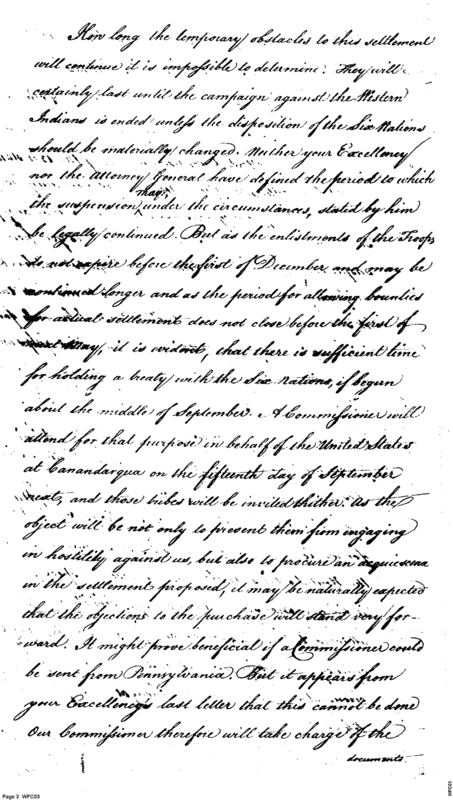 How long the temporary obstacles to this settlement
will continue it is impossible to determine. They will
certainly last until the campaign against the Western
Indians is ended unless the disposition of the Six Nations
should be materially changed. Neither your Excellency
nor the Attorney General have defined the period to which
may,
the suspension under the circumstances, stated by him
be legally continued. But as the enlistments of the Troops
do not expire before the first of December and may be
continued longer and as the period for allowing bounties
for actual settlement does not close before the first of
next May, it is evident, that there is sufficient time
for holding a treaty with the Six Nations, if begun
about the middle of September. A Commissioner will
attend for that purpose in behalf of the United States
at Canandarqua on the fifteenth day of September
next, and those tribes will be invited thither. As the
object will be not only to prevent them from ingaging
in hostility against us, but also to procure an acquiescence
in the settlement proposed, it may be naturally expected
that the objections to the purchase will stand very for-
ward. It might prove beneficial if a Commissioner could
be sent from Pennsylvania. But it appears from
your Excellency's last letter that this cannot be done
Our Commissioner therefore will take charge of the
documents
Page 3 WFC03
WFC03